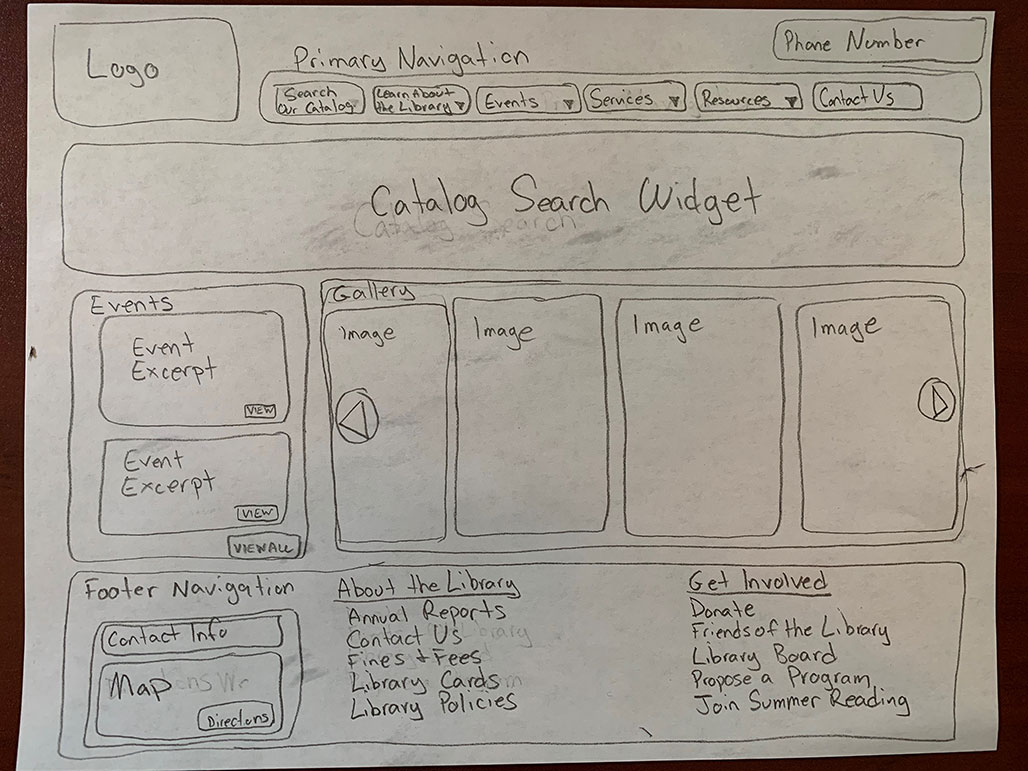 Logo
Primary Navigation
Phone Number
Search
Our Catalog
Learn About
the Library
Events
Services
Resources
Contact Us
Catalog Search Widget
Catalog Search
Events
Event
Excerpt
VIEW
Event
Excerpt
VIEW
VIEW ALL
Gallery
Image
Image
Image
Image
Footer Navigation
Contact Info
Map
Directions
About the Library
Annual Reports
Contact Us
Fines + Fees
Library Cards
Library Policies
Get Involved
Donate
Friends of the Library
Library Board
Propose a Program
Join Summer Reading